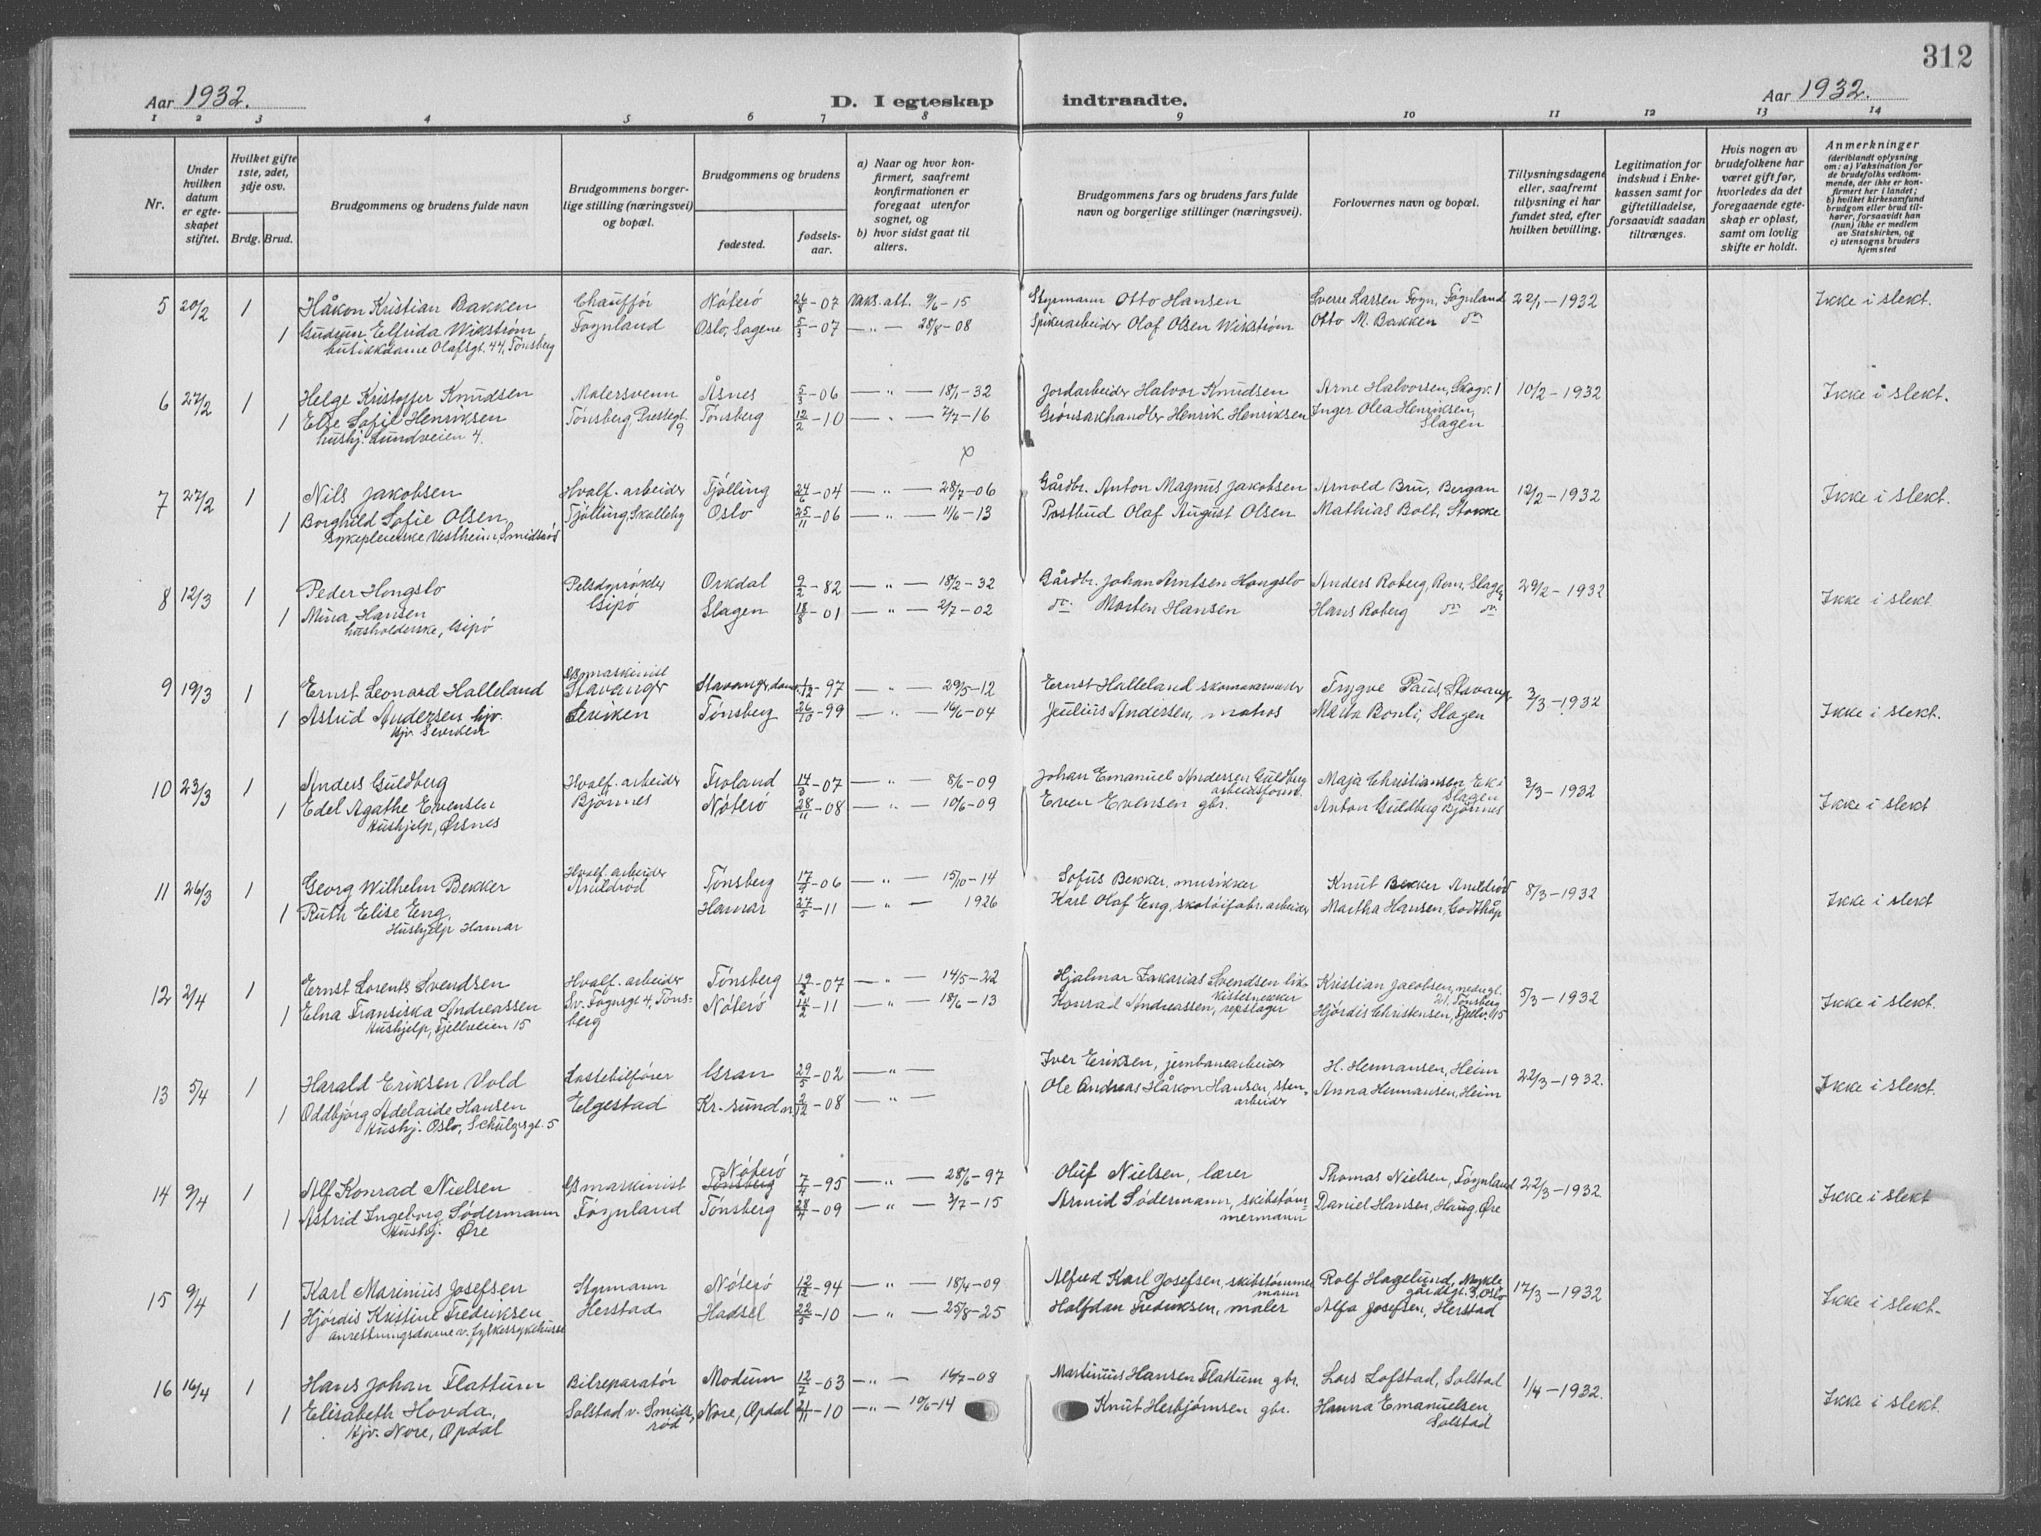 312
Aar 1932.
D. I egteskap indtraadte.
Aar 1932.
1 2 3 4 5 6 7 8 9 10 11 12 13 14
Nr.
Under hvilken datum er egteskapet stiftet.
Hvilket gifte 1ste, 2det, 3dje osv.
Brdg. Brud.
Brudgommens og brudens fulde navn
Brudgommens borgerlige stilling (næringsvei) og bopæl.
Brudgommens og brudens
fødested.
fødselsaar.
a) Naar og hvor konfirmert, saafremt konfirmationen er foregaat utenfor sognet, og
b) hvor sidst gaat til alters.
Brudgommens fars og brudens fars fulde navn og borgerlige stillinger (næringsvei).
Forlovernes navn og bopæl.
Tillysningsdagene eller, saafremt tillysning ei har fundet sted, efter hvilken bevilling.
Legitimation for indskud i Enkekassen samt for giftetilladelse, forsaavidt saadan tiltrænges.
Hvis nogen av brudefolkene har været gift før, hvorledes da det foregaaende egteskap er opløst, samt om lovlig skifte er holdt.
Anmerkninger
(deriblandt oplysning om: a) Vaksination for de brudefolks vedkommende, der ikke er konfirmert her i landet; b) hvilket kirkesamfund brudgom eller brud tilhører, forsaavidt han (hun) ikke er medlem av Statskirken, og c) utensogns bruders hjemsted
5 20/2 1 Håkon Kristian Bakken Chauffør Nøterø 26/8-07 Vaks. att. 9/6-15 Styrmann Otto Hansen Sverre Larsen Føyn, Føynland 22/1-1932 Ikke i slekt.
1 Gudrun Elfrida Wikstrøm Føynland Oslo, Sagene 5/3-07 — " — 28/8-08 Spikerarbeider Olaf Olsen Wikstrøm Otto M. Bakken do
butikkdame Olafsgt. 44, Tønsberg
6 27/2 1 Helge Kristoffer Knudsen Malersvenn Åsnes 5/3-06 — " — 18/1-32 Jordarbeider Halvor Knudsen Arne Halvorsen, Skogv. 1 10/2-1932 Ikke i slekt.
1 Else Sofie Henriksen Tønsberg, Prestegt. 9 Tønsberg 12/2-10 — " — 7/7-16 Grønsakhandler Henrik Henriksen Inger Olea Henriksen, Slagen
hushj. Lundveien 4.
7 27/2 1 Nils Jakobsen Hvalf. arbeider Tjølling 24/6-04 — " — 28/7-06 Gårdbr. Anton Magnus Jakobsen Arnold Bru, Bergan 12/2-1932 Ikke i slekt.
1 Borghild Sofie Olsen Tjølling, Skalleby Oslo 25/11-06 — " — 11/6-13 Postbud Olaf August Olsen Mathias Bolt, Stokke
Sykepleierske Vestheim, Smidsrød
8 12/3 1 Peder Hongslo Pelsdyrrøkter Orkdal 9/2-82 — " — 18/2-32 Gårdbr. Johan Arntsen Hongslo Anders Roberg, Rom, Slagen 29/2-1932 Ikke i slekt
1 Mina Hansen Gipø Slagen 18/8-01 — " — 2/7-02 do. Morten Hansen Hans Roberg do do
husholderske, Gipø
9 19/3 1 Ernst Leonard Halleland maskinist Stavanger Stavanger, domk. -97 — " — 29/5-12 Ernst Halleland skomakermester Trygve Paus, Stavanger 3/3-1932 Ikke i slekt.
1 Astrid Andersen hjv. Tønsberg 26/10-99 — " — 16/6-04 Julius Andersen, matros Märta Bonli, Slagen
10 23/3 1 Anders Guldberg Hvalf. arbeider Froland 14/3-07 — " — 8/6-09 Johan Emanuel Andersen Guldberg arbeidsform. Maja Christiansen, Eik i Slagen 3/3-1932 Ikke i slekt
1 Edel Agathe Evensen Bjønnes Nøterø 28/11-08 — " — 10/6-09 Even Evensen gbr. Anton Guldberg Bjønnes
Hushjelp, Ørsnes
11 26/3 1 Georg Wilhelm Bekker Hvalf. arbeider Årøldrød Tønsberg 17/4-06 — " — 15/10-14 Sofus Bekker, musikker Knut Bekker 8/3-1932 Ikke i slekt
1 Ruth Elise Eng, Hamar 27/5-11 — " — 1926 Karl Olaf Eng, skotøifabr. arbeider Martha Hansen, Godthåp
Hushjelp Hamar
12 2/4 1 Ernst Lorents Svendsen Hvalf. arbeider Tønsberg 19/2-07 — " — 14/5-22 Hjalmar Zakarias Svendsen likkistesnekker Kristian Jacobsen, nedregt. 21. Tønsberg 5/3-1932 Ikke i slekt.
1 Elna Fransiska Andreassen Sv. Foynsgt 4, Tønsberg Nøterø 14/2-11 — " — 18/6-13 Konrad Andreassen, repslager Hjørdis Christensen, Fjellv. 15
Hushjelp, Fjellveien 15
13 5/4 1 Harald Eriksen Vold Lastebilfører Gran 29/5-02 — " — Iver Eriksen, jernbanearbeider H. Hermansen, Heim 22/3-1932. Ikke i slekt.
1 Oddbjørg Adelaide Hansen Elgestad Kr.-sund n 2/12-08 — " — Ole Andreas Håkon Hansen, stenarbeider Anna Hermansen, Heim
Hushj. Oslo, Schulzgt. 5
14 9/4 1 Alf Konrad Nielsen maskinist Nøterø Tønsberg 7/4-95 — " — 28/6-97 Oluf Nielsen, lærer Thomas Nielsen, Føynland 22/3-1932 Ikke i slekt
1 Astrid Ingeborg Södermann Føynland Tønsberg 28/4-09 — " — 3/7-15 Arvid Södermann, skibstømmermann Daniel Hansen, Haug, Øre
Hushj. Øre
15 9/4 1 Karl Marinius Josefsen Styrmann Nøterø 12/12-94 — " — 18/4-09 Alfred Karl Josefsen, skibstømmermann Rolf Hagelund, Mykle gårdsgt. 3, Oslo 17/3-1932 Ikke i slekt.
1 Hjørdis Kristine Fredriksen Herstad Hadsel 22/5-10 — " — 25/8-25 Halfdan Fredriksen, maler Alfa Josefsen, Herstad
anretningsdame v. fylkessykehuset
16 16/4 1 Hans Johan Flattum Bilreparatør Modum 12/7-03 — " — 16/7-08 Martinius Hansen Flattum gbr. Lars Lofstad, Solstad 1/4-1932. Ikke i slekt.
1 Elisabeth Hovda, Solstad v. Smidsrød Nore, Opdal 21/11-10 — " — 10/6-14 Knut Herbjørnsen gbr. Hanna Emanuelsen Solstad
Hjv. Nore, Opdal